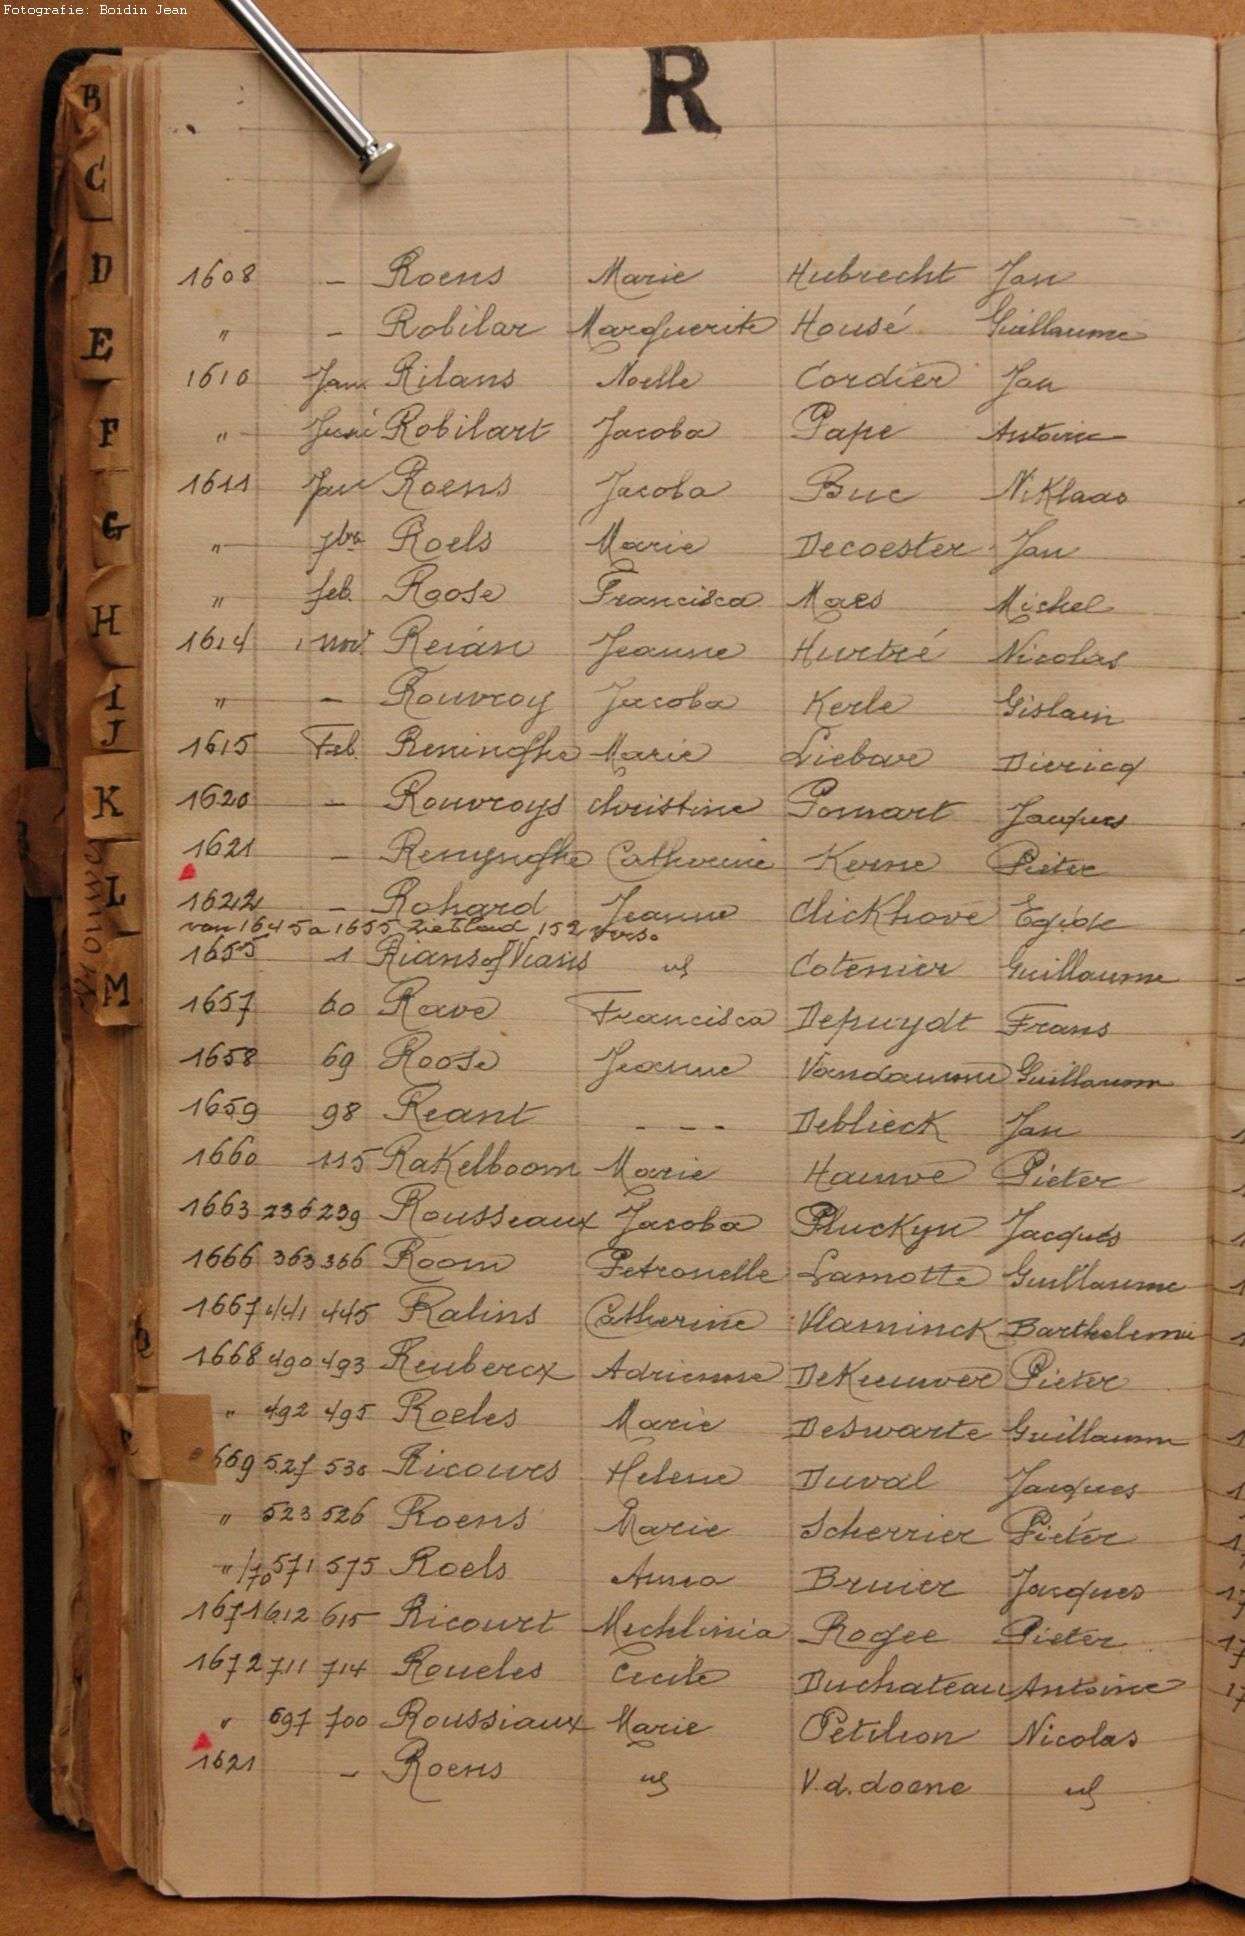 Fotografie: Boidin Jean
R
B
C
D
E
F
G
H
I
J
K
L
M
1608 – Roens Marie Hubrecht Jan
" – Robilar Marguerite Housé Guillaume
1610 Jan Rilans Noelle Cordier Jan
" Juni Robilart Jacoba Pape Antoine
1611 Jan Roens Jacoba Buc Niklaas
" 7bre Roels Marie Decoester Jan
" feb. Roose Francisca Maes Michel
1614 1 nov Reián Jeanne Hurtré Nicolas
" – Rouvroy Jacoba Kerle Gislain
1615 Feb. Reninghe Marie Liebare Diericq
1620 – Rouvroys Christine Pomart Jacques
1621 – Renynghe Catherine Kerne Pieter
1622 – Rohard Jeanne Clickhove Egide
van 1645 a 1655 Zie blad 152 verso
1655 1 Rians of Vians Cotenier Guillaume
1657 60 Rave Francisca Depuydt Frans
1658 69 Roose Jeanne Vandamme Guillaume
1659 98 Reant - - - Deblieck Jan
1660 115 Rakelboom Marie Hauwe Pieter
1663 236 239 Rousseaux Jacoba Pluckyn Jacques
1666 363 366 Room Petronelle Lamotte Guillaume
1667 441 445 Ralins Catherine Vlaminck Barthelemi
1668 490 493 Reubercx Adrienne Dekeuwer Pieter
" 492 495 Roeles Marie Deswarte Guillaume
669 527 530 Ricours Helene Duval Jacques
" 523 526 Roens Marie Scherrier Pieter
"/70 571 575 Roels Anna Bruier Jacques
1671 612 615 Ricourt Mechlinia Rogee Pieter
1672 711 714 Roueles Cecile Duchateau Antoine
" 697 700 Roussiaux Marie Petilion Nicolas
1621 – Roens V.d.doene